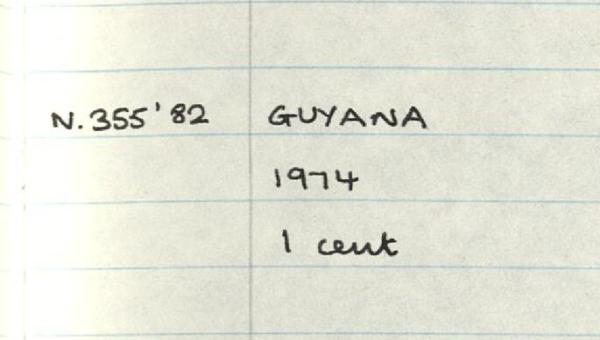 N.355'82 GUYANA
1974
1 cent